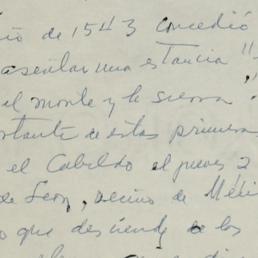 ño de 1543 concedió
asentar una estancia "
el monte y la sierra.
ortante de estas primera
el Cabildo el jueves 2
de Leon, vecino de Méxi
o que desciende de los